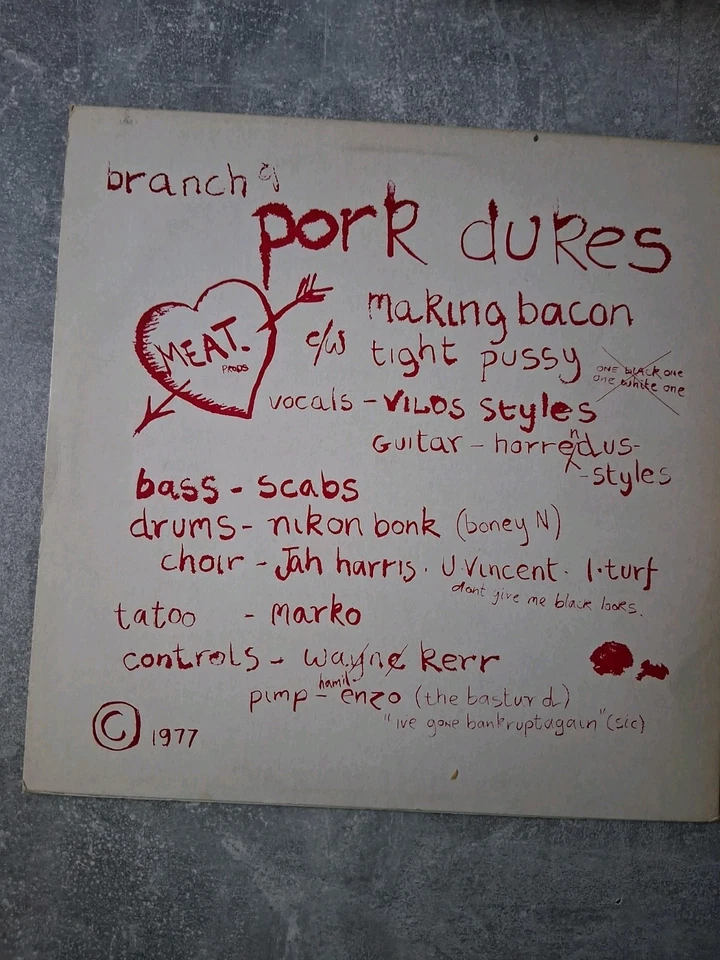 branch of
pork dukes
MEAT.
PRODS
making bacon
c/w tight pussy
ONE black one
one white one
vocals - VILOS styles
Guitar - horrendus-
-styles
bass - scabs
drums - nikon bonk (boney N)
choir - Jah harris. U.Vincent. I.turf
dont give me black looks.
tatoo - marko
controls - wayne kerr
hamil
pimp - enzo (the basturd)
"ive gone bankruptagain" (sic)
© 1977